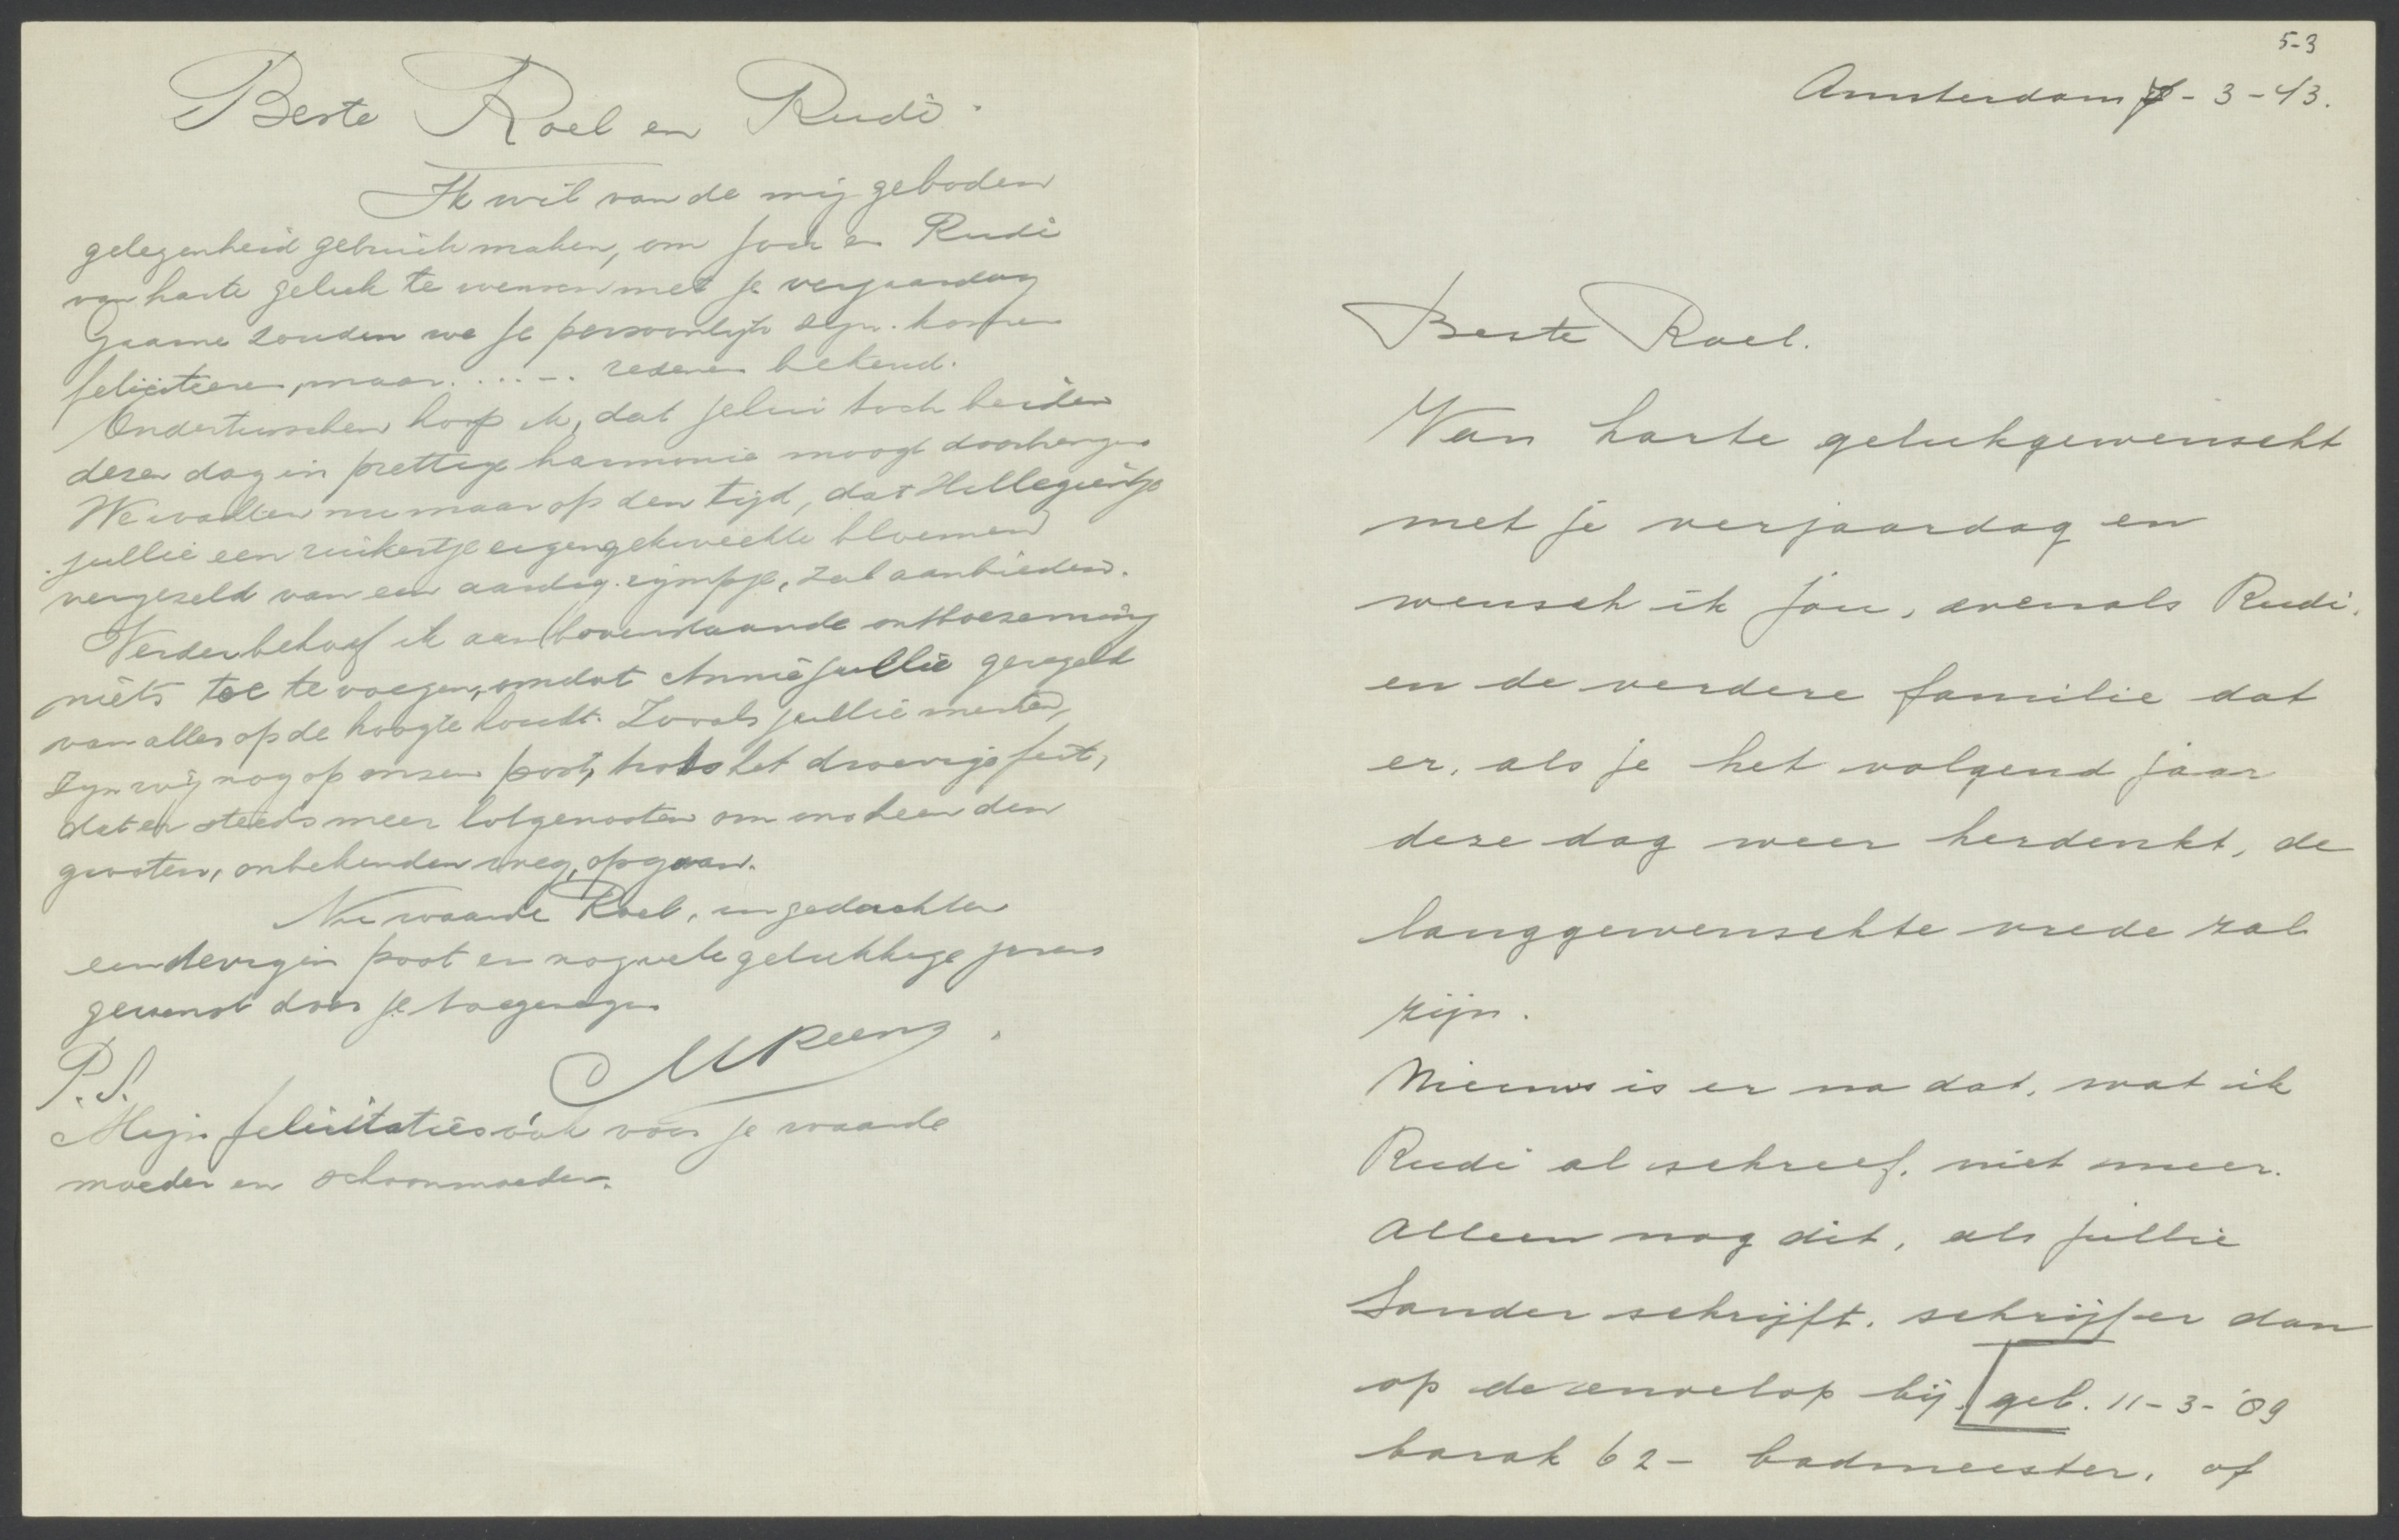 Beste Roel en Rudi.
Ik wil van de mij geboden
gelegenheid gebruik maken, om jou en Rudi
van harte geluk te wensen met je verjaardag
Gaarne zouden we je persoonlijk zijn komen
feliciteeren, maar...... redenen bekend.
Ondertusschen hoop ik, dat jelui toch beiden
dezen dag in prettige harmonie moogt doorbrengen
We wachten nu maar op den tijd, dat Hillegientje
jullie een ruikertje eigengekweekte bloemen
vergezeld van een aardig rijmpje, zal aanbieden.
Verder behoef ik aan bovenstaande ontboezeming
niets toe te voegen, omdat Annie jullie geregeld
van alles op de hoogte houdt. Zooals jullie merken,
zijn wij nog op onzen post, trots het droevige feit,
dat er steeds meer lotgenooten om ons heen den
grooten, onbekenden weg, opgaan.
Nu waarde Roel, in gedachten
een stevigen poot en nog vele gelukkige jaren
gewenst door je toegenegen
P.S.
Mijn felicitaties óók voor je waarde
moeder en schoonmoeder.
5-3
Amsterdam 7-3-43.
Beste Roel.
Van harte gelukgewenscht
met je verjaardag en
wensch ik jou, evenals Rudi,
en de verdere familie dat
er, als je het volgend jaar
deze dag weer herdenkt, de
langgewenschte vrede zal
zijn.
Nieuws is er na dat, wat ik
Rudi al schreef, niet meer.
Alleen nog dit, als jullie
Sander schrijft, schrijf er dan
op de envelop bij [geb. 11-3-'09
barak 62 - badmeester, of